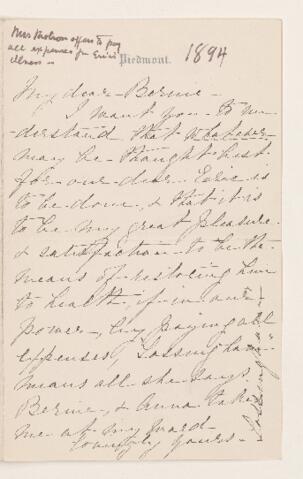 Mrs Robson offers to pay
all expenses for
illness -
Piedmont.
1894
My dear Bernie -
I want you - to un-
-derstand that whatever
may be - thought - best
for - our dear is
to be done, & that it is
to be my great pleasure
& satisfaction - to be the
means of restoring him
to health, if - in our
power -, by paying all
expenses,
means all she says.
Bernie, & Anna take
me at my word -
Yours -